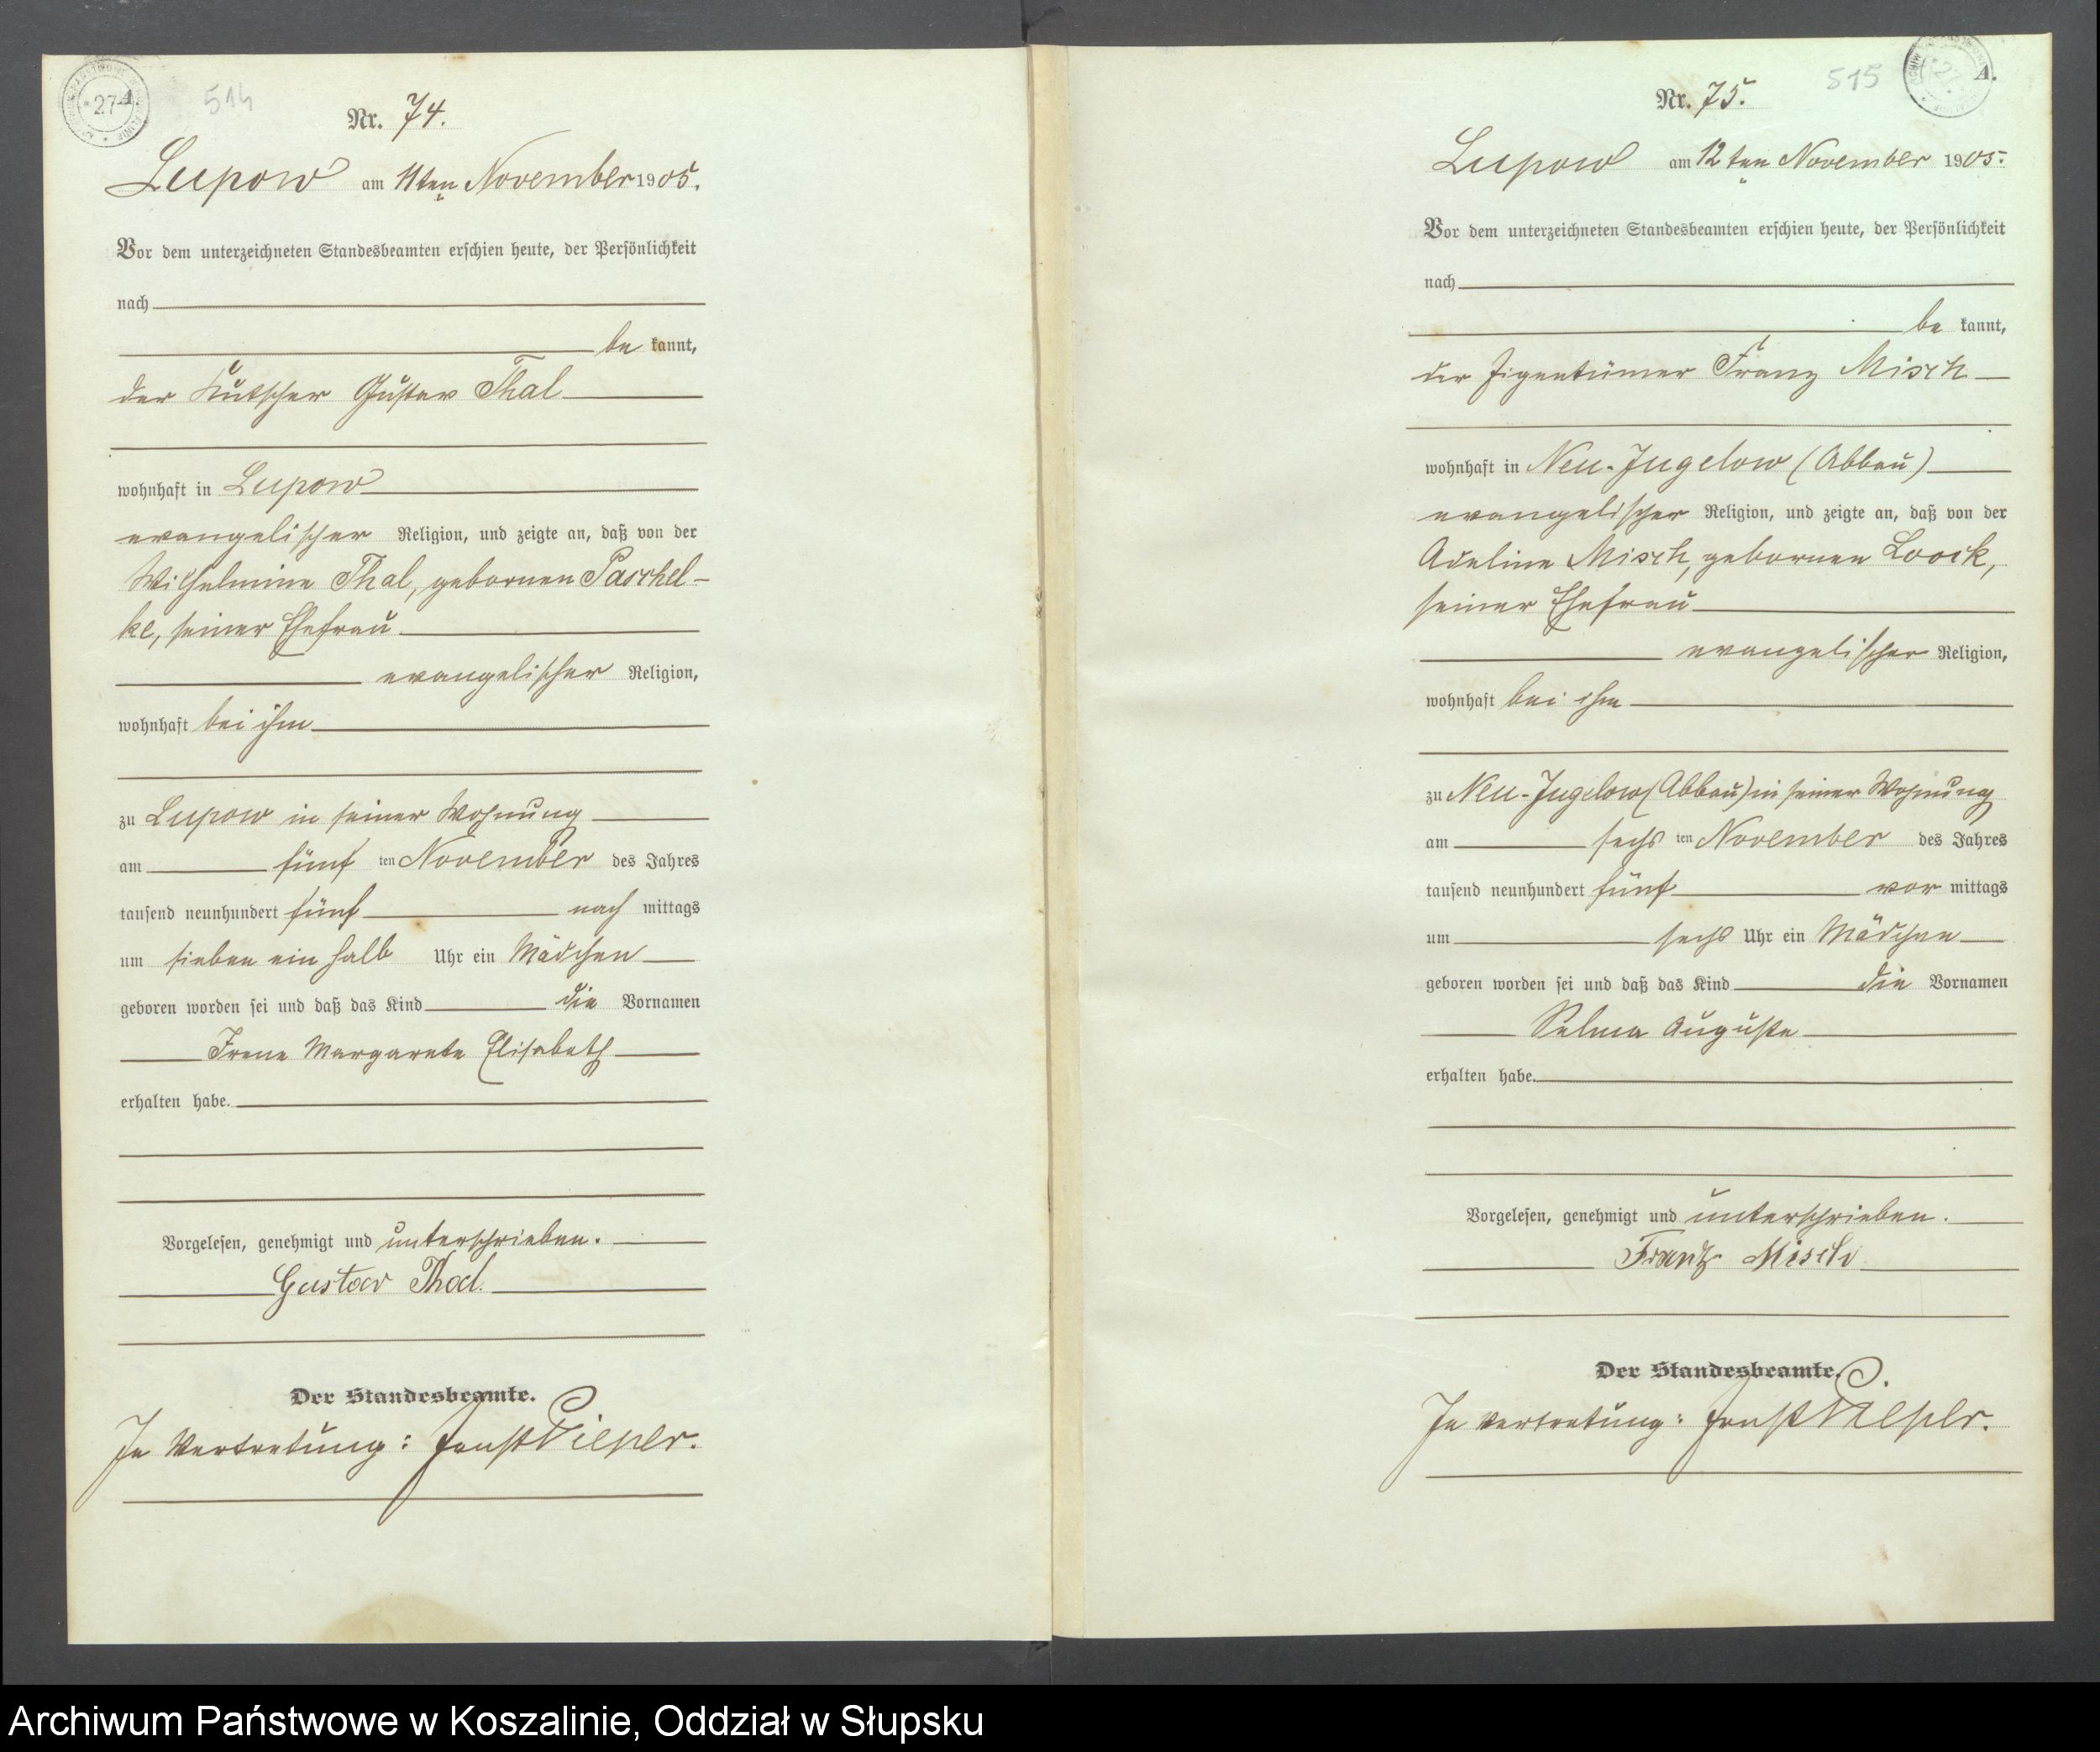 514
Nr. 74.
Lupow am 11ten November 1905.
Vor dem unterzeichneten Standesbeamten erschien heute, der Persönlichkeit
nach
be kannt,
der Kutscher Gustav Thal
wohnhaft in Lupow
evangelischer Religion, und zeigte an, daß von der
Wilhelmine Thal, gebornen Paschel-
ke, seiner Ehefrau
evangelischer Religion,
wohnhaft bei ihm
zu Lupow in seiner Wohnung
am fünf ten November des Jahres
tausend neunhundert fünf nach mittags
um sieben ein halb Uhr ein Mädchen
geboren worden sei und daß das Kind die Vornamen
Irene Margarete Elisabeth
erhalten habe.
Vorgelesen, genehmigt und unterschrieben.
Gustav Thal.
Der Standesbeamte.
In Vertretung: Ernst Pieper.
515
A.
Nr. 75.
Lupow am 12ten November 1905.
Vor dem unterzeichneten Standesbeamten erschien heute, der Persönlichkeit
nach
be kannt,
der Eigentümer Franz Misch
wohnhaft in Neu-Jugelow (Abbau)
evangelischer Religion, und zeigte an, daß von der
Adeline Misch, gebornen Loock,
seiner Ehefrau
evangelischer Religion,
wohnhaft bei ihm
zu Neu-Jugelow (Abbau) in seiner Wohnung
am sechs ten November des Jahres
tausend neunhundert fünf vor mittags
um sechs Uhr ein Mädchen
geboren worden sei und daß das Kind die Vornamen
Selma Auguste
erhalten habe.
Vorgelesen, genehmigt und unterschrieben.
Frantz Misch
Der Standesbeamte.
In Vertretung: Ernst Pieper.
Archiwum Państwowe w Koszalinie, Oddział w Słupsku